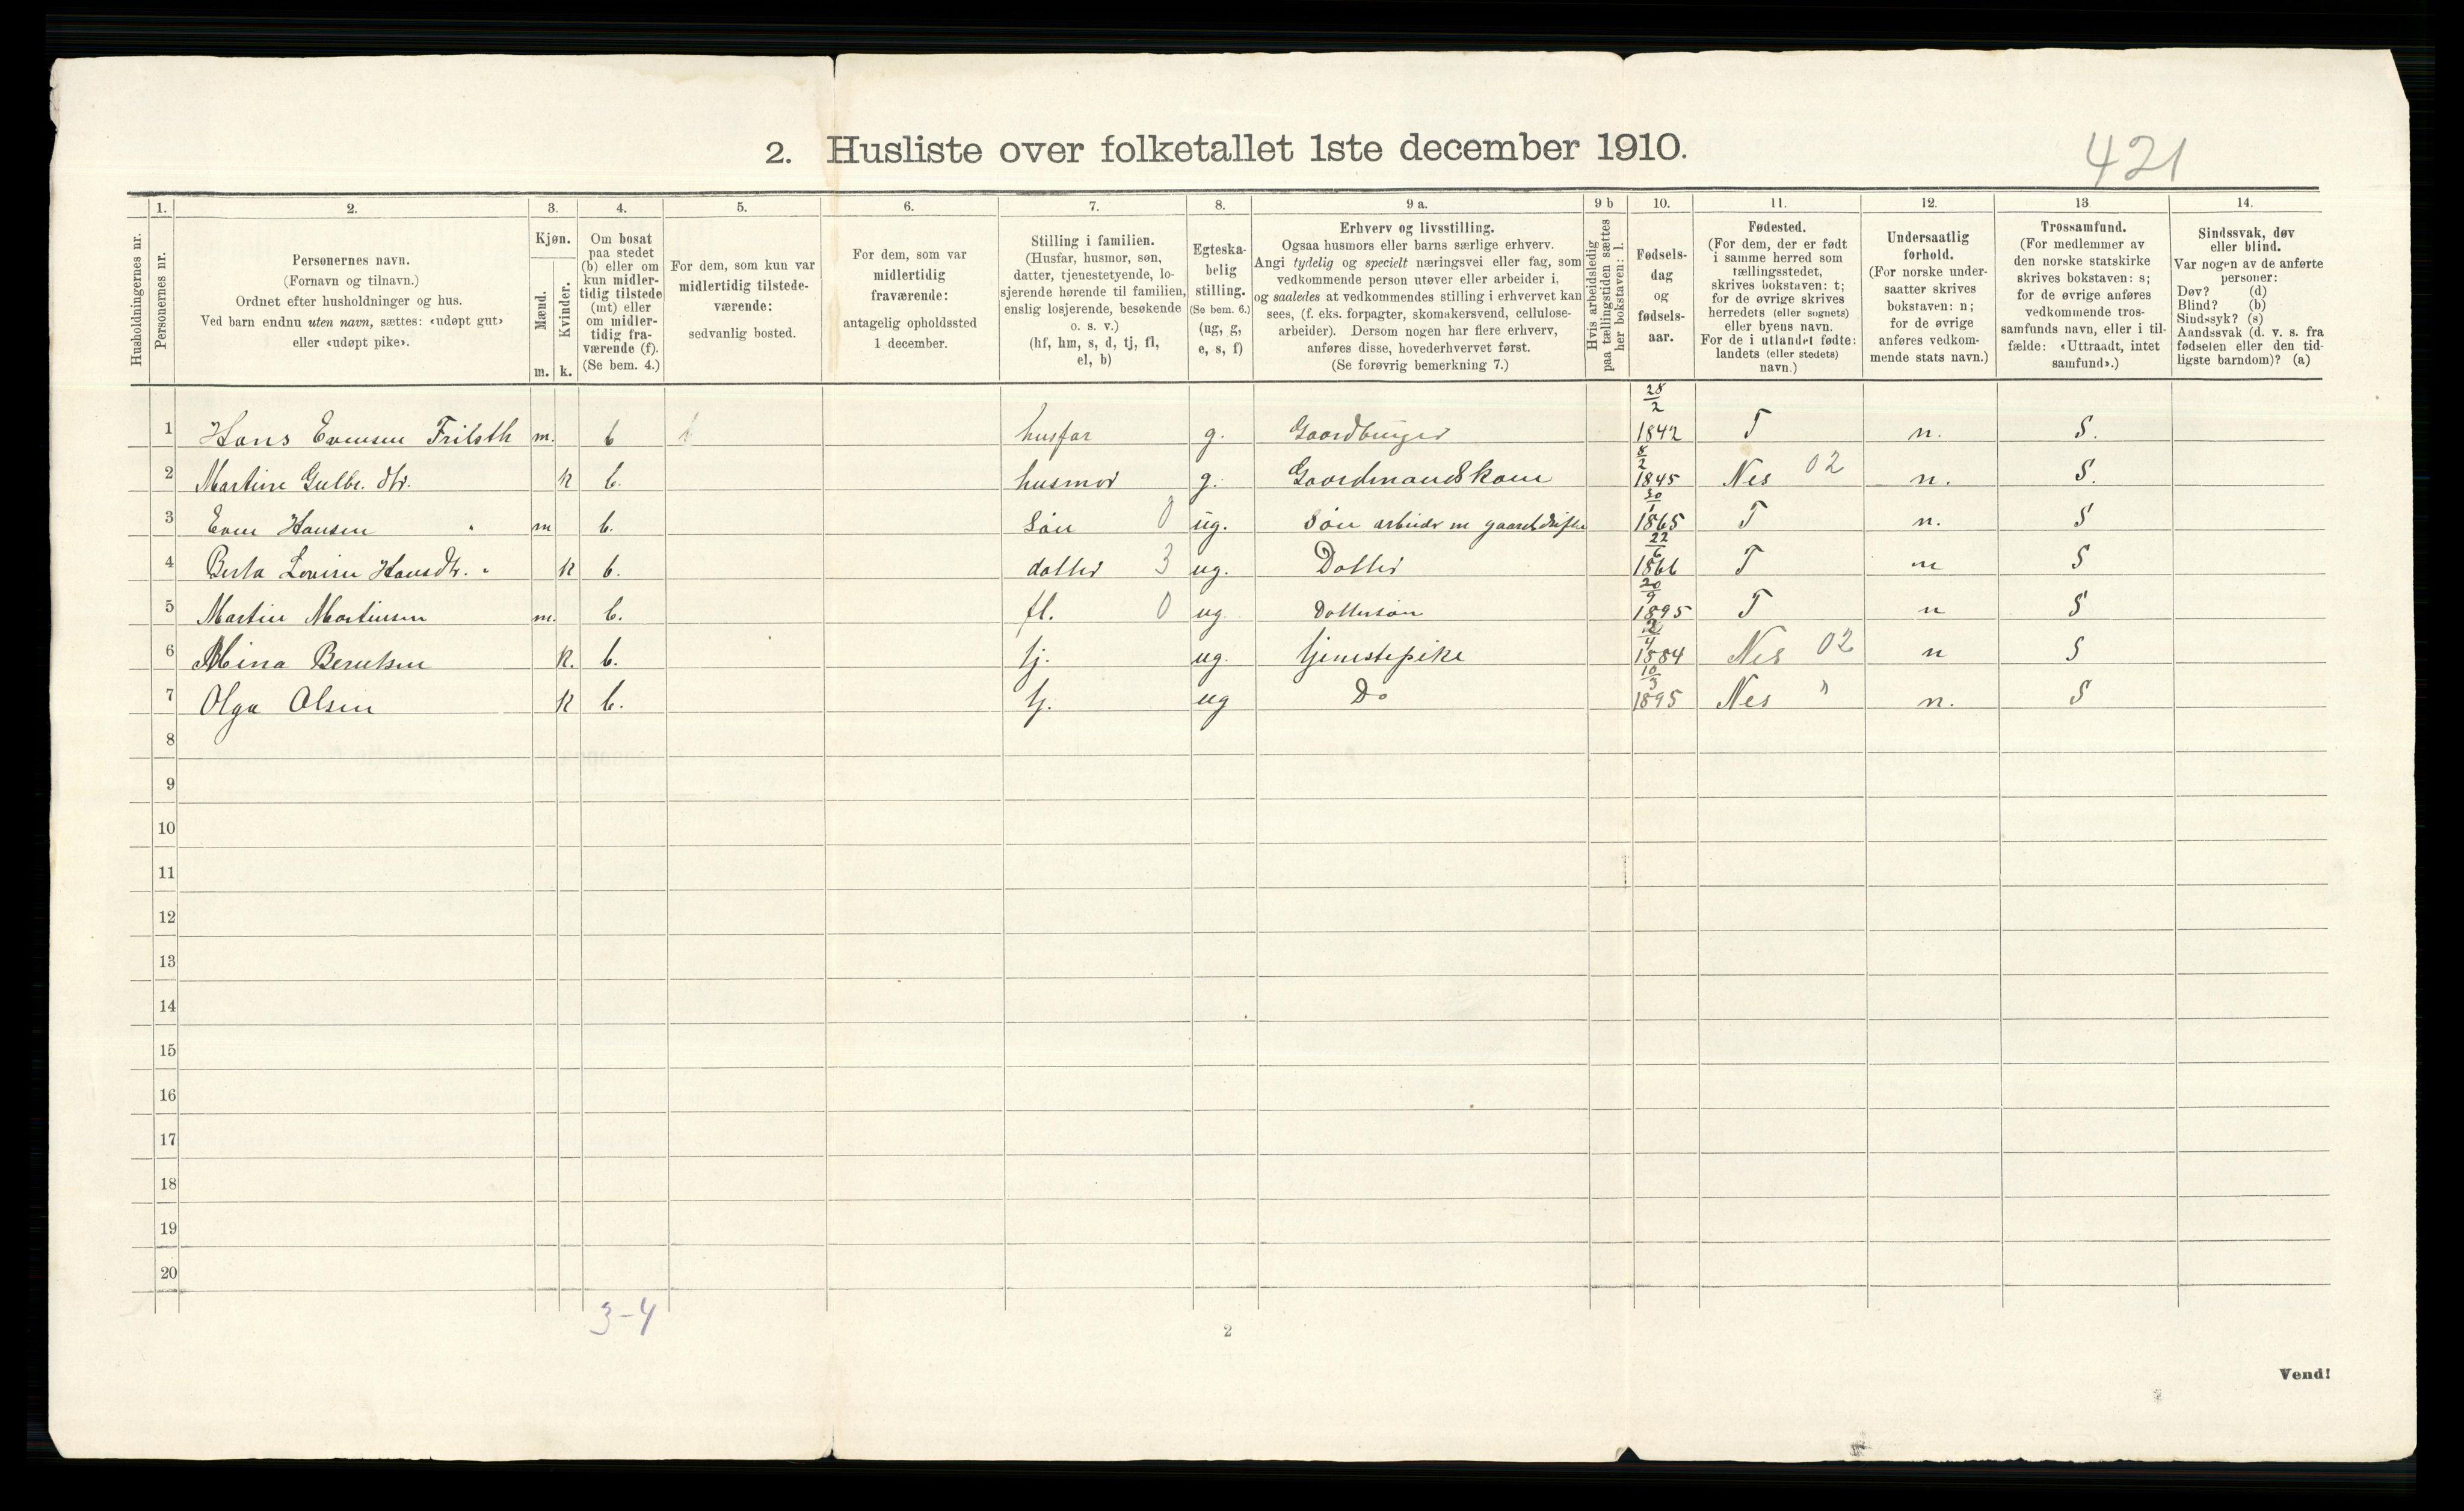 421
2. Husliste over folketallet 1ste december 1910.
1. 2. 3. 4. 5. 6. 7. 8. 9 a. 9 b 10. 11. 12. 13 14.
Husholdningernes nr.
Personernes nr.
Personernes navn.
(Fornavn og tilnavn.)
Ordnet efter husholdninger og hus.
Ved barn endnu uten navn, sættes: «udøpt gut»
eller «udøpt pike».
Kjøn.
Mænd.
Kvinder.
m. k.
Om bosat
paa stedet
(b) eller om
kun midler-
tidig tilstede
(mt) eller
om midler-
tidig fra-
værende (f).
(Se bem. 4.)
For dem, som kun var
midlertidig tilstede-
værende:
sedvanlig bosted.
For dem, som var
midlertidig
fraværende:
antagelig opholdssted
1 december.
Stilling i familien.
(Husfar, husmor, søn,
datter, tjenestetyende, lo-
sjerende hørende til familien,
enslig losjerende, besøkende
o. s. v.)
(hf, hm, s, d, tj, fl,
el, b)
Egteska-
belig
stilling.
(Se bem. 6.)
(ug, g,
e, s, f)
Erhverv og livsstilling.
Ogsaa husmors eller barns særlige erhverv.
Angi tydelig og specielt næringsvei eller fag, som
vedkommende person utøver eller arbeider i,
og saaledes at vedkommendes stilling i erhvervet kan
sees, (f. eks. forpagter, skomakersvend, cellulose-
arbeider). Dersom nogen har flere erhverv,
anføres disse, hovederhvervet først.
(Se forøvrig bemerkning 7.)
Hvis arbeidsledig
paa tællingstiden sættes
her bokstaven: l.
Fødsels-
dag
og
fødsels-
aar.
Fødested.
(For dem, der er født
i samme herred som
tællingsstedet,
skrives bokstaven: t;
for de øvrige skrives
herredets (eller sognets)
eller byens navn.
For de i utlandet fødte:
landets (eller stedets)
navn.)
Undersaatlig
forhold.
(For norske under-
saatter skrives
bokstaven: n;
for de øvrige
anføres vedkom-
mende stats navn.)
Trossamfund.
(For medlemmer av
den norske statskirke
skrives bokstaven: s;
for de øvrige anføres
vedkommende tros-
samfunds navn, eller i til-
fælde: «Uttraadt, intet
samfund».)
Sindssvak, døv
eller blind.
Var nogen av de anførte
personer:
Døv? (d)
Blind? (b)
Sindssyk? (s)
Aandssvak (d. v. s. fra
fødselen eller den tid-
ligste barndom)? (a)
1 Hans Evensen m. b husfar g. Gaardbruger 28/2 1842 T n. S.
2 Martine Gulbr. dtr. k b. husmor g. Gaardmandskone 8/2 1845 Nes 02 n. S.
3 Even Hansen " m b. Søn 0 ug. Søn 30/1 1865 T n. S
4 Berta Lovise Hansdtr. " k b. datter 3 ug. Datter 22/6 1866 T n S
5 Martin Martinsen m. b. fl. 0 ug. Dattersøn 20/9 1895 T n S
6 Mina Berntsen k. b. tj. ug. tjenestepike 1884 Nes 02 n S
7 Olga Olsen k b. tj. ug Do 10/3 1895 Nes " n. S
8
9
10
11
12
13
14
15
16
17
18
19
20
3-4
2
Vend!